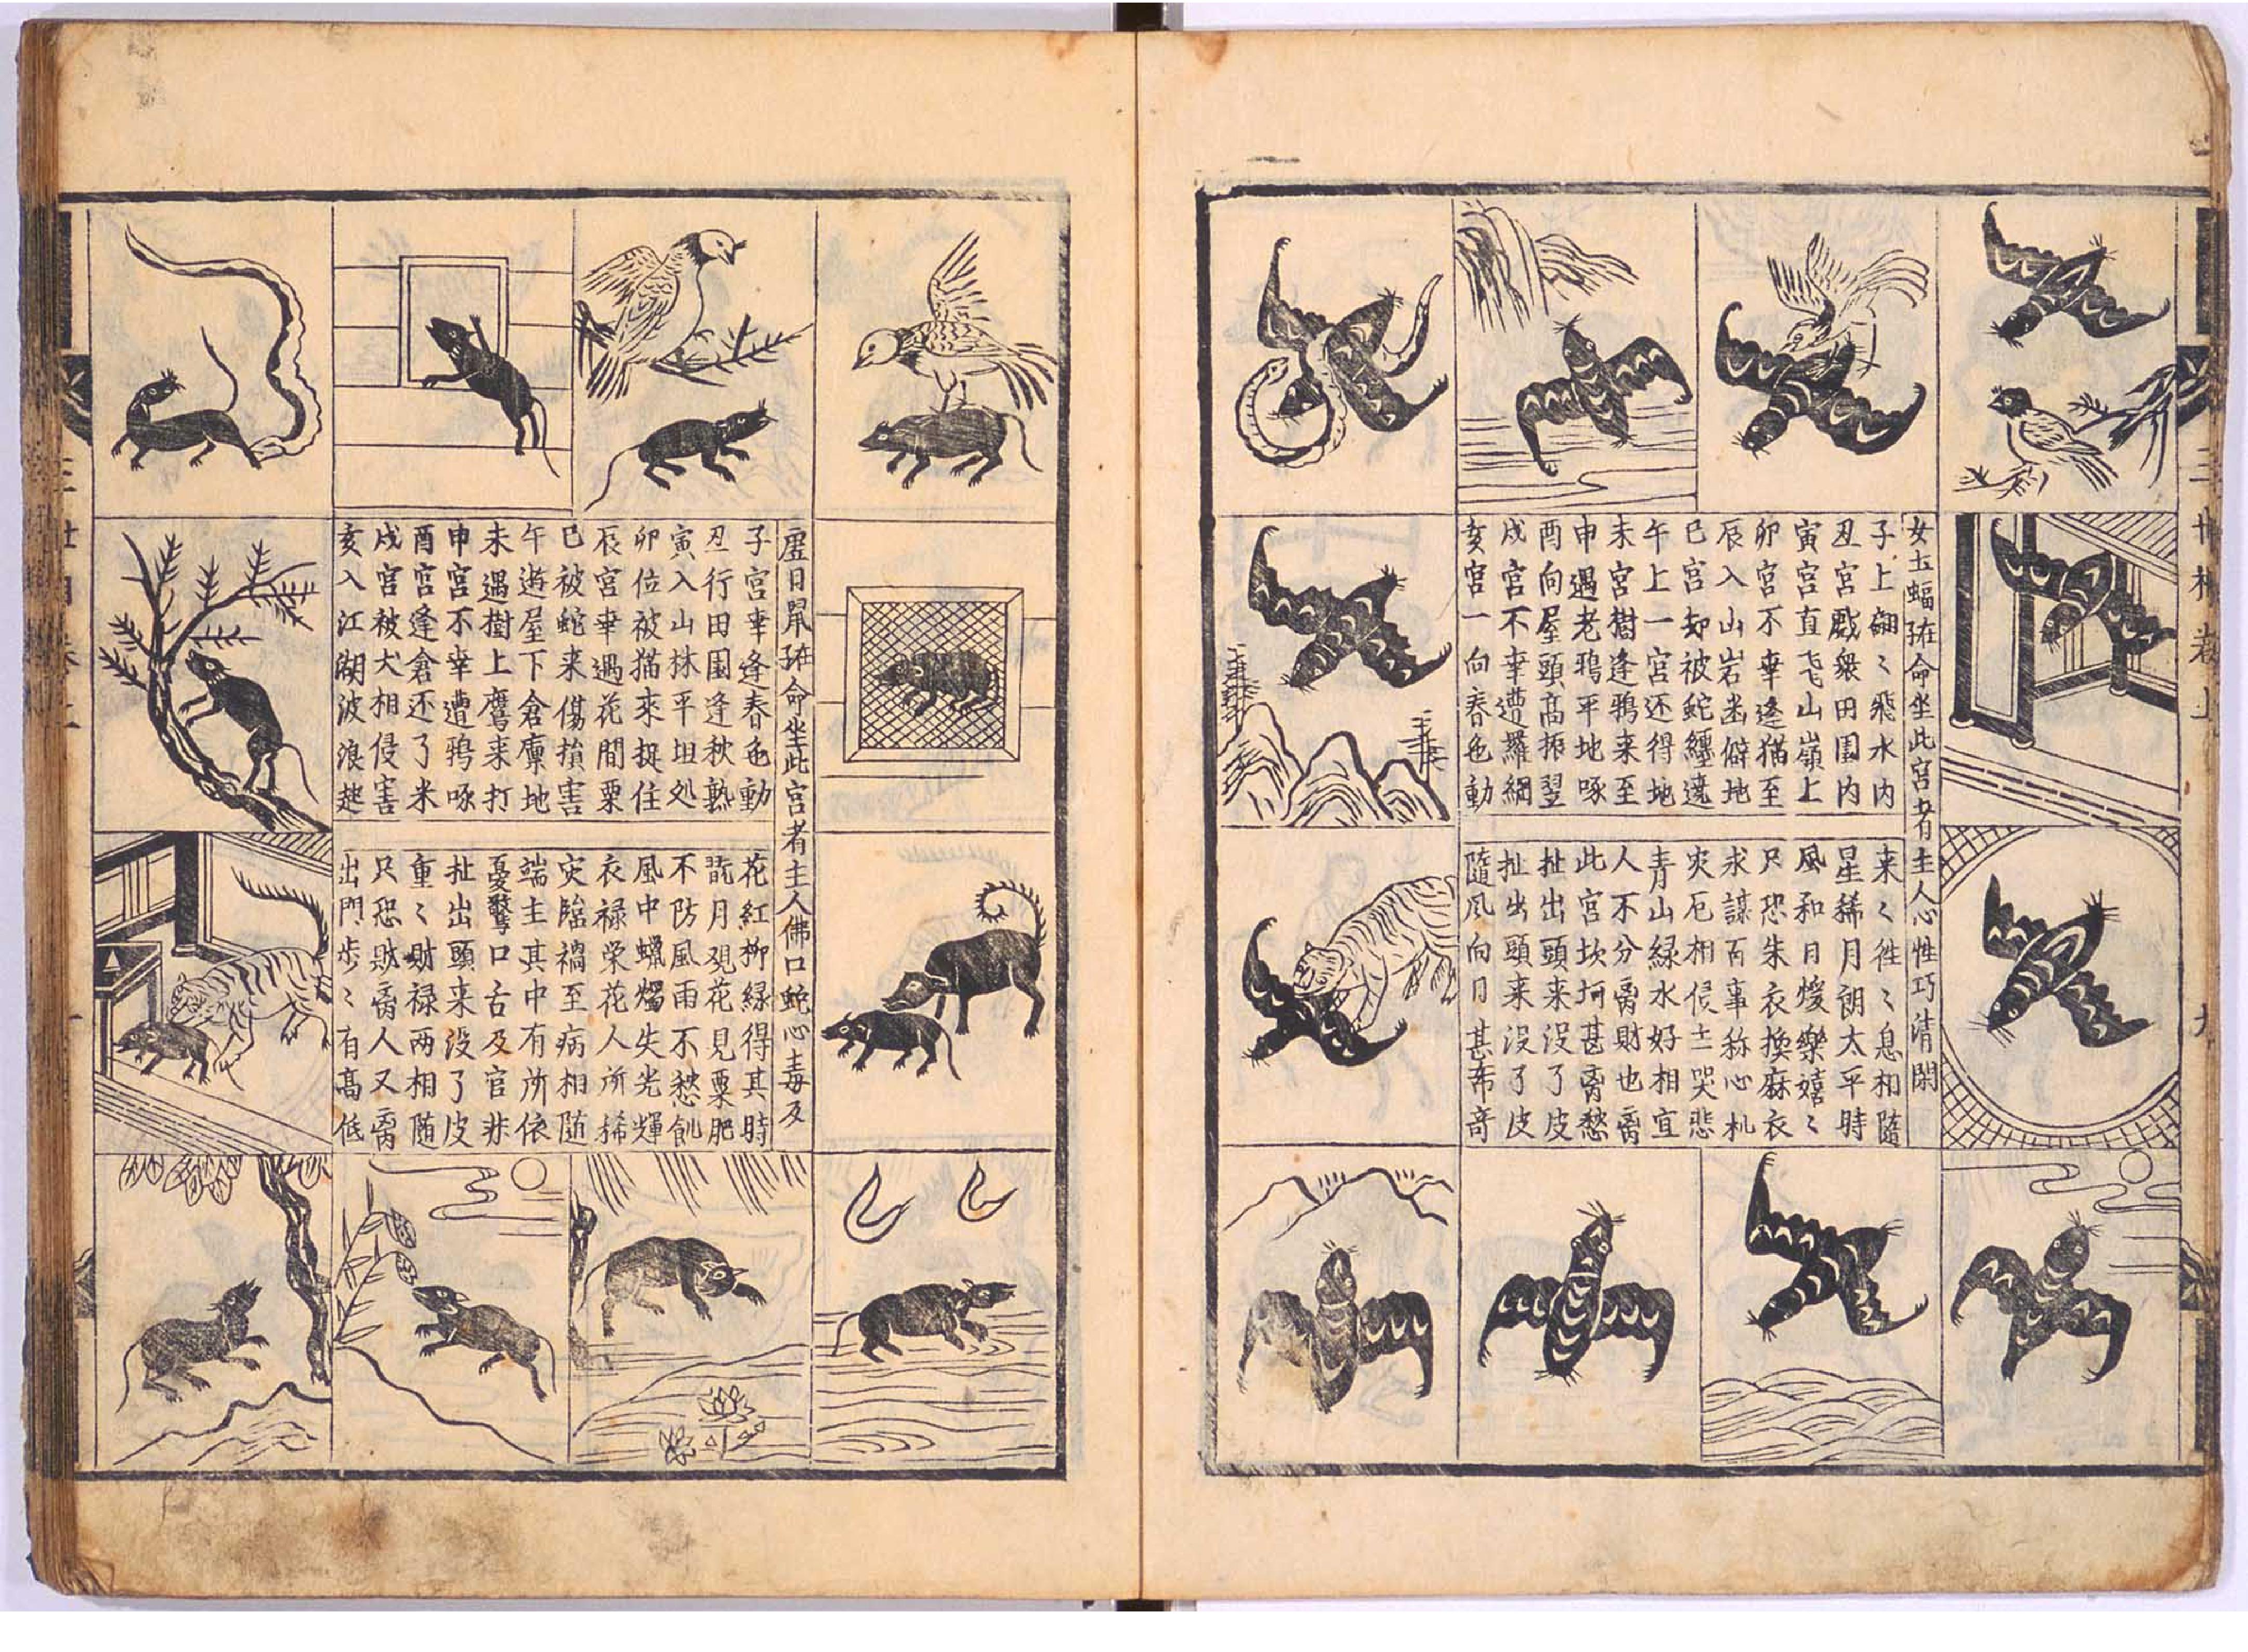 女土蝠弦命坐此宮者主人心性巧清閑
子上翩〻飛水內
丑宮戲衆田園內
寅宮直飞山嶺上
卯宮不幸逢猫至
辰入山岩幽僻地
巳宮却被蛇纏遶
午上一宮还得地
未宮樹逢鴉来至
申遇老鴉平地啄
酉向屋頭高振翌
戌宮不幸遭羅網
亥宮一向春色動
来〻徃〻息相隨
星稀月朗太平時
風和日煖樂嬉〻
只恐朱衣換麻衣
求謀百事称心机
灾厄相侵土哭悲
青山緑水好相宜
人不分离財也离
此宮坎坷甚离愁
扯出頭来没了皮
扯出頭来没了皮
隨风向日甚希奇
虛日鼠弦命坐此宮者主人佛口蛇心毒及
子宮幸逢春色動
丑行田園逢秋熟
寅入山林平坦処
卯位被猫来捉住
辰宮幸遇花間粟
巳被蛇来傷損害
午逰屋下倉廪地
未遇樹上鷹来打
申宮不幸遭鴉啄
酉宮逢倉还了米
戌宮被犬相侵害
亥入江湖波浪趂
花紅柳緑得其時
翫月覌花見粟肥
不防風雨不愁飢
風中蠟燭失光輝
衣禄榮花人所稀
灾臨禍至病相随
端主其中有所依
憂驚口舌及官非
扯出頭来没了皮
重〻財禄两相随
只恐財离人又离
出門步〻有高低